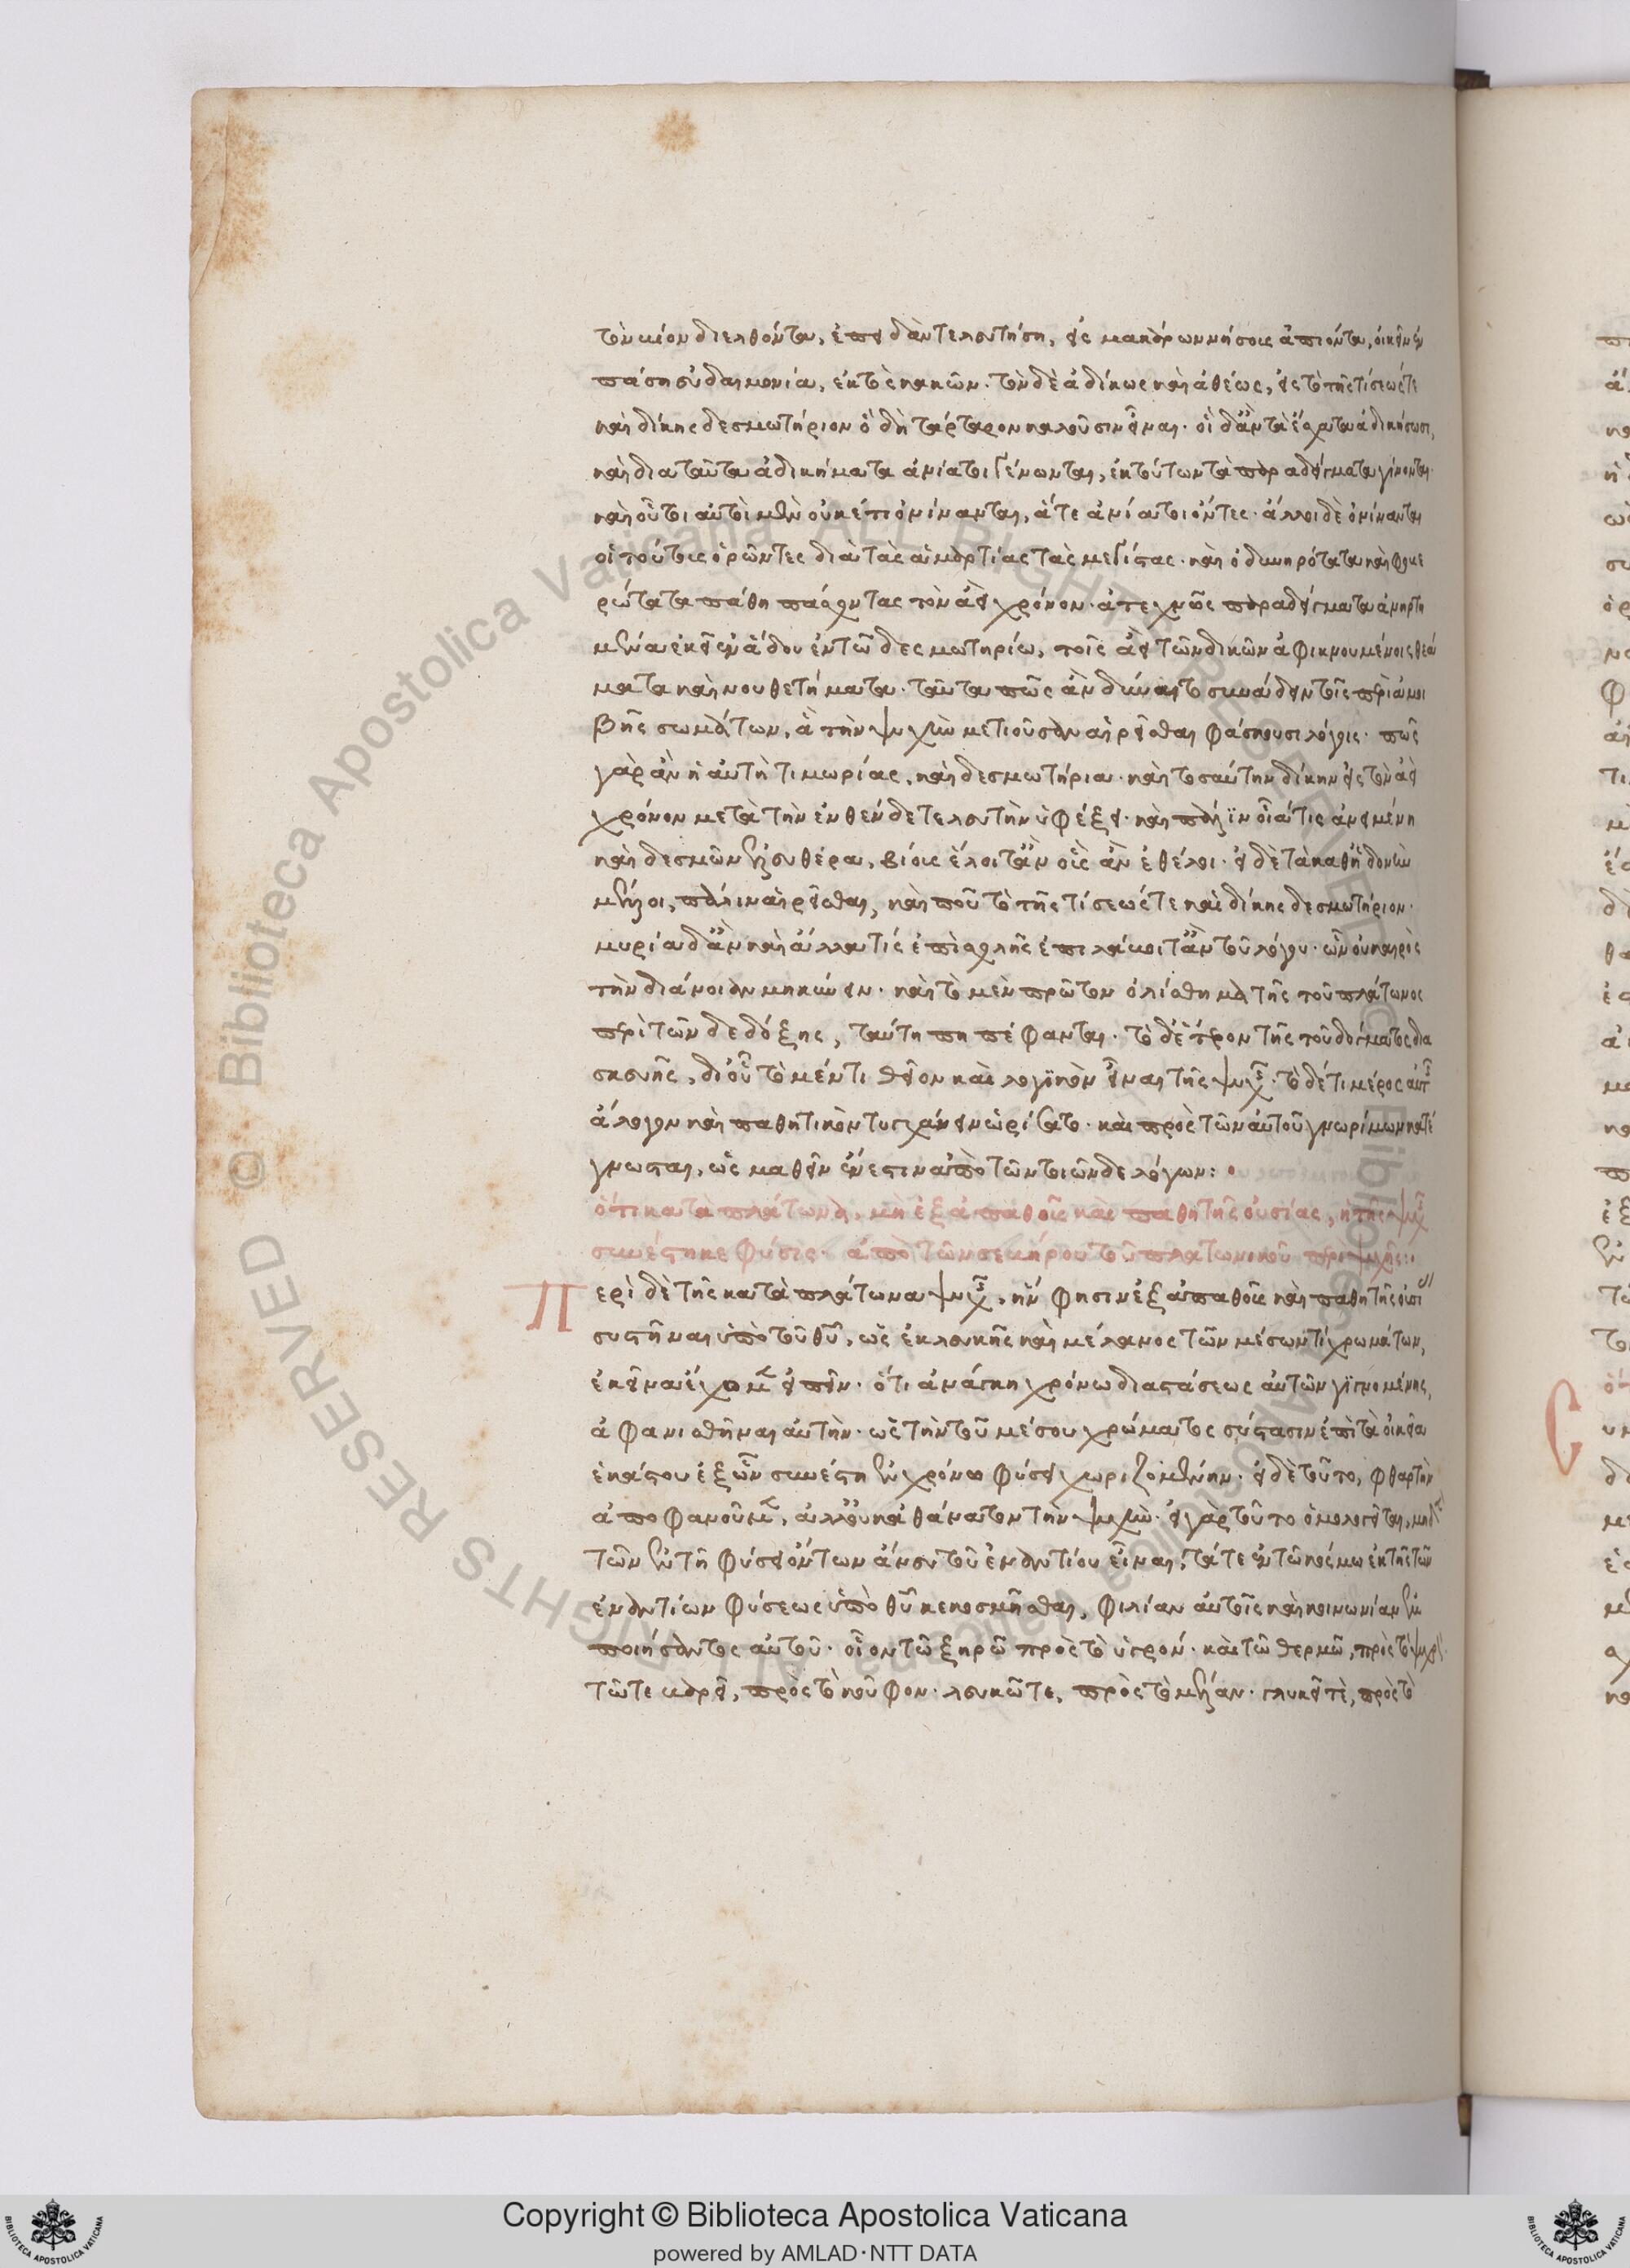 τὸν βίον διελθόντα, ἐπειδὰν τελευτήσῃ, εἰς μακάρων νήσους ἀπιόντα, οἰκεῖν ἐν
πάσῃ εὐδαιμονίᾳ, ἐκτὸς κακῶν· τὸν δὲ ἀδίκως καὶ ἀθέως, εἰς τὸ τῆς τίσεώς τε
καὶ δίκης δεσμωτήριον ὃ δὴ τάρταρον καλοῦσιν ἰέναι· οἳ δ' ἂν τὰ ἔσχατα ἀδικήσωσι,
καὶ δια ταῦτα ἀδικήματα ἀνίατοι γένωνται, ἐκ τούτων τὰ παραδείγματα γίνονται·
καὶ οὗτοι αὐτοὶ μὲν οὐκέτι ὀνίνανται, ἅτε ἀνίατοι ὄντες· ἄλλοι δὲ ὀνίνανται
οἱ τούτους ὁρῶντες διὰ τὰς ἁμαρτίας τὰς μεγίστας· καὶ ὀδυνηρότατα καὶ φοβε
ρώτατα πάθη πάσχοντας τὸν ἀεὶ χρόνον· ἀτεχνῶς παραδείγματα ἀνηρτη
μένα ἐκεῖ ἐν ἅδου ἐν τῷ δεσμωτηρίῳ, τοῖς ἀεὶ τῶν ἀδίκων ἀφικνουμένοις θεά
ματα καὶ νουθετήματα· ταῦτα πῶς ἂν δύναιτο συνάδειν τοῖς περὶ ἀμοι
βῆς σωμάτων, ἃ τὴν ψυχὴν μετιοῦσαν αἱρεῖσθαι φάσκουσι λόγοις· πῶς
γὰρ ἂν ἡ αὐτὴ τιμωρίας, καὶ δεσμωτήρια· καὶ τοσαύτην δίκην εἰς τὸν ἀεὶ
χρόνον μετὰ τὴν ἐνθένδε τελευτὴν ὑφέξει· καὶ πάλιν οἷά τις ἀνειμένη
καὶ δεσμῶν ἐλευθέρα, βίους ἕλοιτ' ἂν οὓς ἂν ἐθέλοι· εἰ δὲ τὰ καθ' ἡδονὴν
μέλλοι, πάλιν αἱρεῖσθαι, καὶ ποῦ τὸ τῆς τίσεώς τε καὶ δίκης δεσμωτήριον·
μυρία δ' ἂν καὶ ἄλλα τις ἐπὶ σχολῆς ἐπιλάβοιτ' ἂν τοῦ λόγου· ὧν οὐ καιρὸς
τὴν διάνοιαν μηκύνειν· καὶ τὸ μὲν πρῶτον ὀλίσθημα τῆς τοῦ πλάτωνος
περὶ τῶνδε δόξης, ταύτῃ πη πέφανται· τὸ δ' ἕτερον τῆς τοῦ δόγματος δια
σκευῆς, δι' οὗ τὸ μέν τι θεῖον καὶ λογικὸν εἶναι τῆς ψυχῆς· τὸ δέ τι μέρος αὐτῆς
ἄλογον καὶ παθητικὸν τυγχάνειν ὡρίσατο· καὶ πρὸς τῶν αὐτοῦ γνωρίμων κατέ
γνωσται, ὡς μαθεῖν ἔνεστιν ἀπὸ τῶν τοιῶνδε λόγων:
ὅτι κατὰ πλάτωνα, μὴ ἐξ ἀπαθοῦς καὶ παθητῆς οὐσίας, ἡ τῆς ψυχῆς
συνέστηκε φύσις· ἀπὸ τῶν σευήρου τοῦ πλατωνικοῦ περὶ ψυχῆς:
Περὶ δὲ τῆς κατὰ πλάτωνα ψυχῆς, ἥν φησιν ἐξ ἀπαθοῦς καὶ παθητῆς οὐσίας
συστῆναι ὑπὸ τοῦ θεοῦ, ὡς ἐκ λευκῆς καὶ μέλανος τῶν μέσων τι χρωμάτων,
ἐκεῖνα ἔχομεν εἰπεῖν· ὅτι ἀνάγκη χρόνῳ διαστάσεως αὐτῶν γιγνομένης,
ἀφανισθῆναι αὐτὴν· ὡς τὴν τοῦ μέσου χρώματος σύστασιν ἐπὶ τὰ οἰκεῖα
ἑκάστου ἐξ ὧν συνέστη ἐν χρόνῳ φύσει χωριζομένην· εἰ δὲ τοῦτο, φθαρτὴν
ἀποφανοῦμεν, ἀλλ' οὐκ ἀθάνατον τὴν ψυχὴν· εἰ γὰρ τοῦτο ὁμολογεῖται, μηδὲν
τῶν ἐν τῇ φύσει ὄντων ἄνευ τοῦ ἐναντίου εἶναι, τά τε ἐν τῷ κόσμῳ ἐκ τῆς τῶν
ἐναντίων φύσεως ὑπὸ θεοῦ κεκοσμῆσθαι, φιλίαν αὐτοῖς καὶ κοινωνίαν ἐν
ποιήσαντος αὐτοῦ· οἷον τῷ ξηρῷ πρὸς τὸ ὑγρόν· καὶ τῷ θερμῷ, πρὸς τὸ ψυχρὸν·
τῷ τε βαρεῖ, πρὸς τὸ κοῦφον· λευκῷ τε, πρὸς τὸ μέλαν· γλυκεῖ τὲ, πρὸς τὸ
Copyright © Biblioteca Apostolica Vaticana
powered by AMLAD·NTT DATA